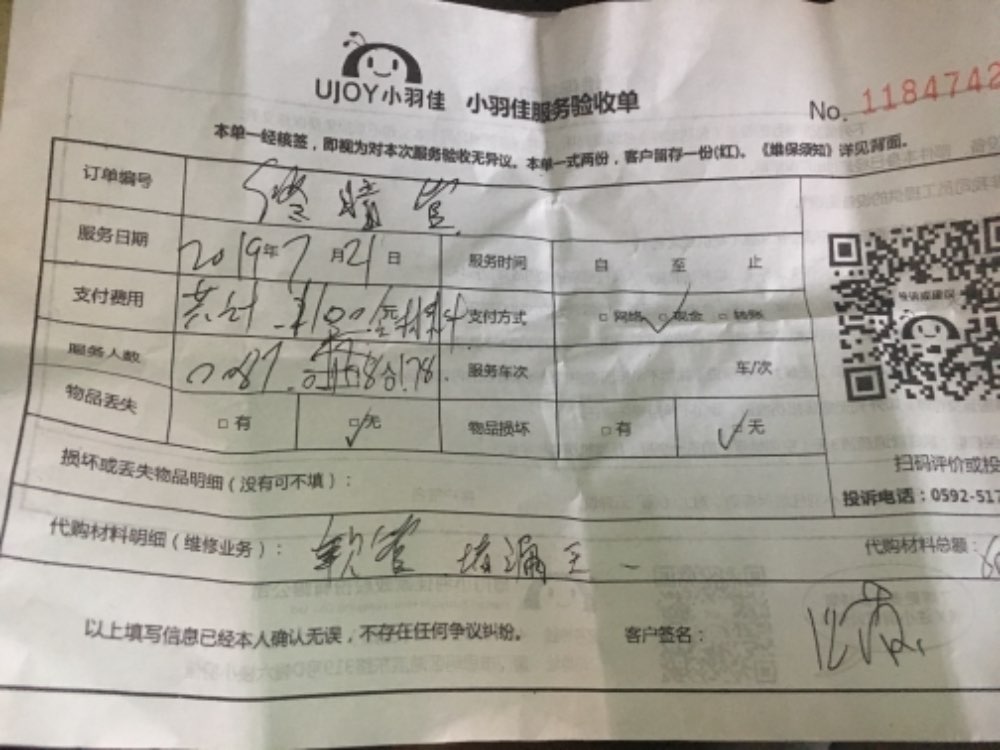 UJOY小羽佳 小羽佳服务验收单
No. 1184742
本单一经核签，即视为对本次服务验收无异议。本单一式两份，客户留存一份(红)。《维保须知》详见背面。
订单编号
服务日期 2019年7月21日 服务时间 自 至 止
支付费用 共计 支付方式 □网络 □现金 □转账
服务人数 服务车次 车/次
物品丢失 □有 □无 物品损坏 □有 □无
扫码评价或投
损坏或丢失物品明细(没有可不填)：
投诉电话：0592-517
代购材料明细(维修业务)： 软管 堵漏王 代购材料总额：
以上填写信息已经本人确认无误，不存在任何争议纠纷。 客户签名：